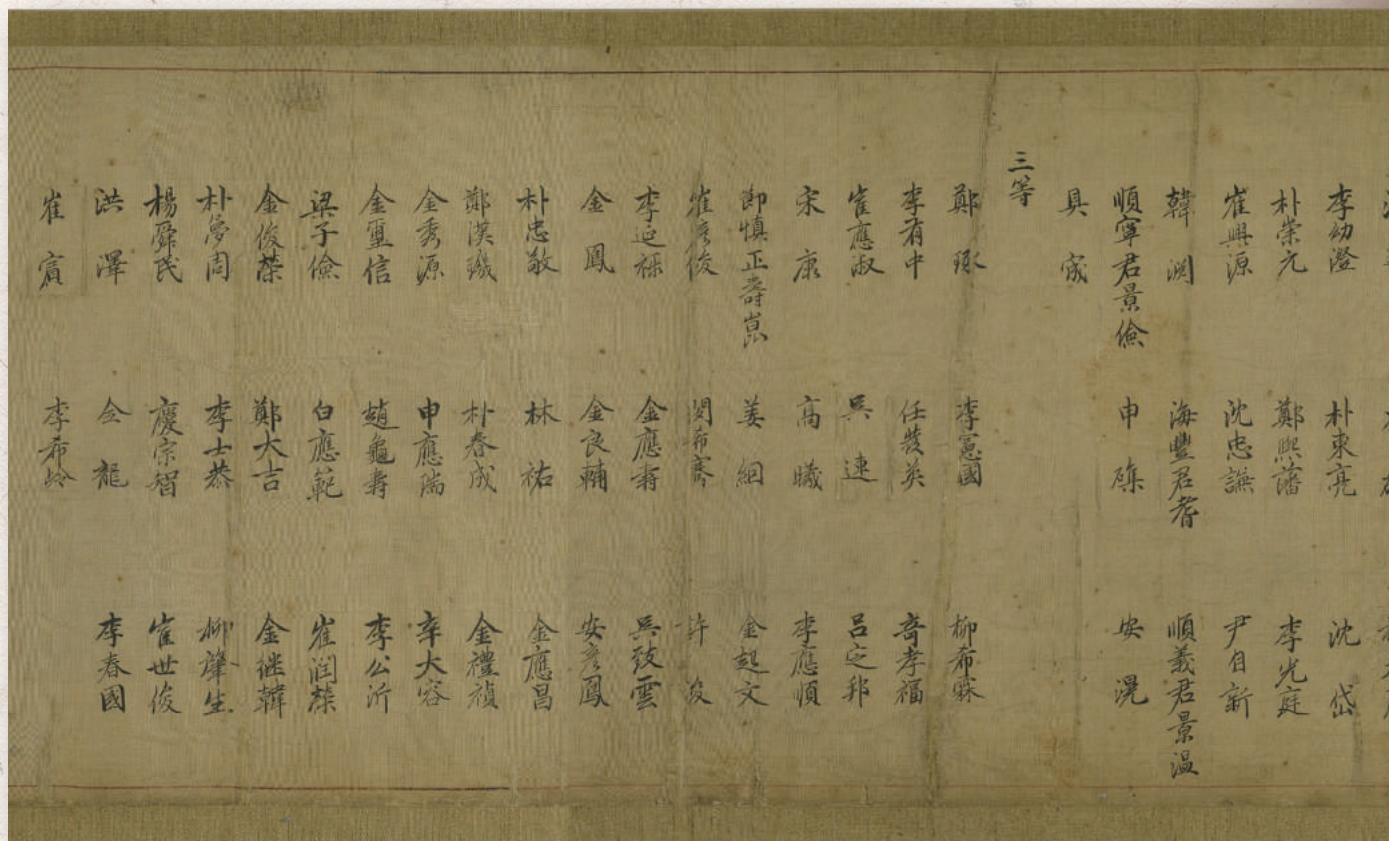 李幼澄 朴東亮 沈岱
朴崇元 鄭熙藩 李光庭
崔興源 沈忠謙 尹自新
韓淵 海豐君耆 順義君景溫
順寧君景儉 申磼 安滉
具宬
三等
鄭琢 李憲國 柳希霖
李有中 任發英 奇孝福
崔應淑 吳連 呂定邦
宋康 高曦 李應順
即愼正壽崑 姜絪 金起文
崔彦俊 閔希騫 許浚
李延祿 金應壽 吳致雲
金鳳 金良輔 安彦鳳
朴忠敬 林祐 金應昌
鄭漢璣 朴春成 金禮禎
金秀源 申應瑞 辛大容
金璽信 趙龜壽 李公沂
梁子儉 白應範 崔潤榮
金俊榮 鄭大吉 金継韓
朴夢周 李士恭 柳肇生
楊舜民 慶宗智 崔世俊
洪澤 全龍 李春國
崔賓 李希齡